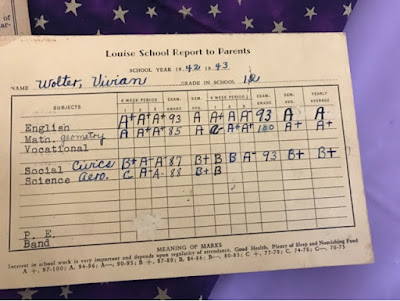 Louise School Report to Parents
SCHOOL YEAR 1942 1943
NAME Wolter, Vivian GRADE IN SCHOOL
SUBJECTS 6 WEEK PERIODS EXAM. GRADE SEM. AVG. 6 WEEK PERIODS EXAM. GRADE SEM. AVG. YEARLY AVERAGE
1 2 3 1 2 3
English A+ A+ A+ 93 A A+ A A 93 A A
Math. geometry A+ A+ A+ 85 A A+ A+ 100 A+ A+
Vocational
Social Civics B+ A- A- 87 B+ B B A- 93 B+ B+
Science Aero. C A- A- 88 B+ B
P. E.
Band
MEANING OF MARKS
Interest in school work is very important and depends upon regularity of attendance, Good Health, Plenty of Sleep and Nourishing Food
A +, 97-100; A, 94-96; A—, 90-95; B +, 87-89; B, 84-86; B—, 80-83; C +, 77-79; C, 74-76; C—, 70-73